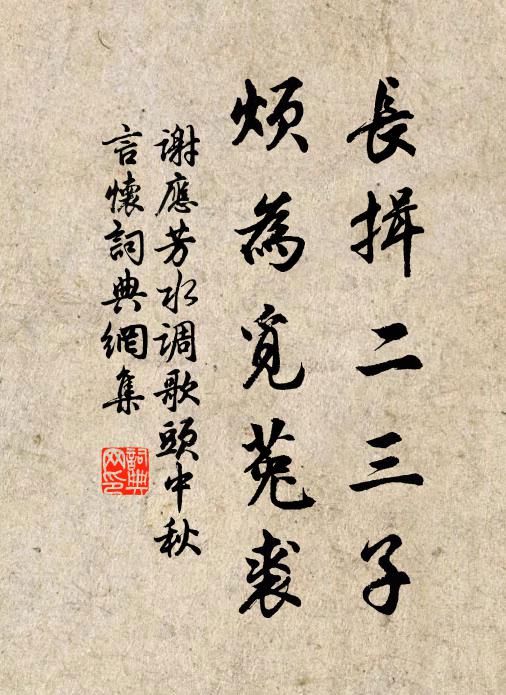 長揖二三子
煩為覓菟裘
謝應芳水调歌頭中秋
言懷詞典網集
詞典
网印